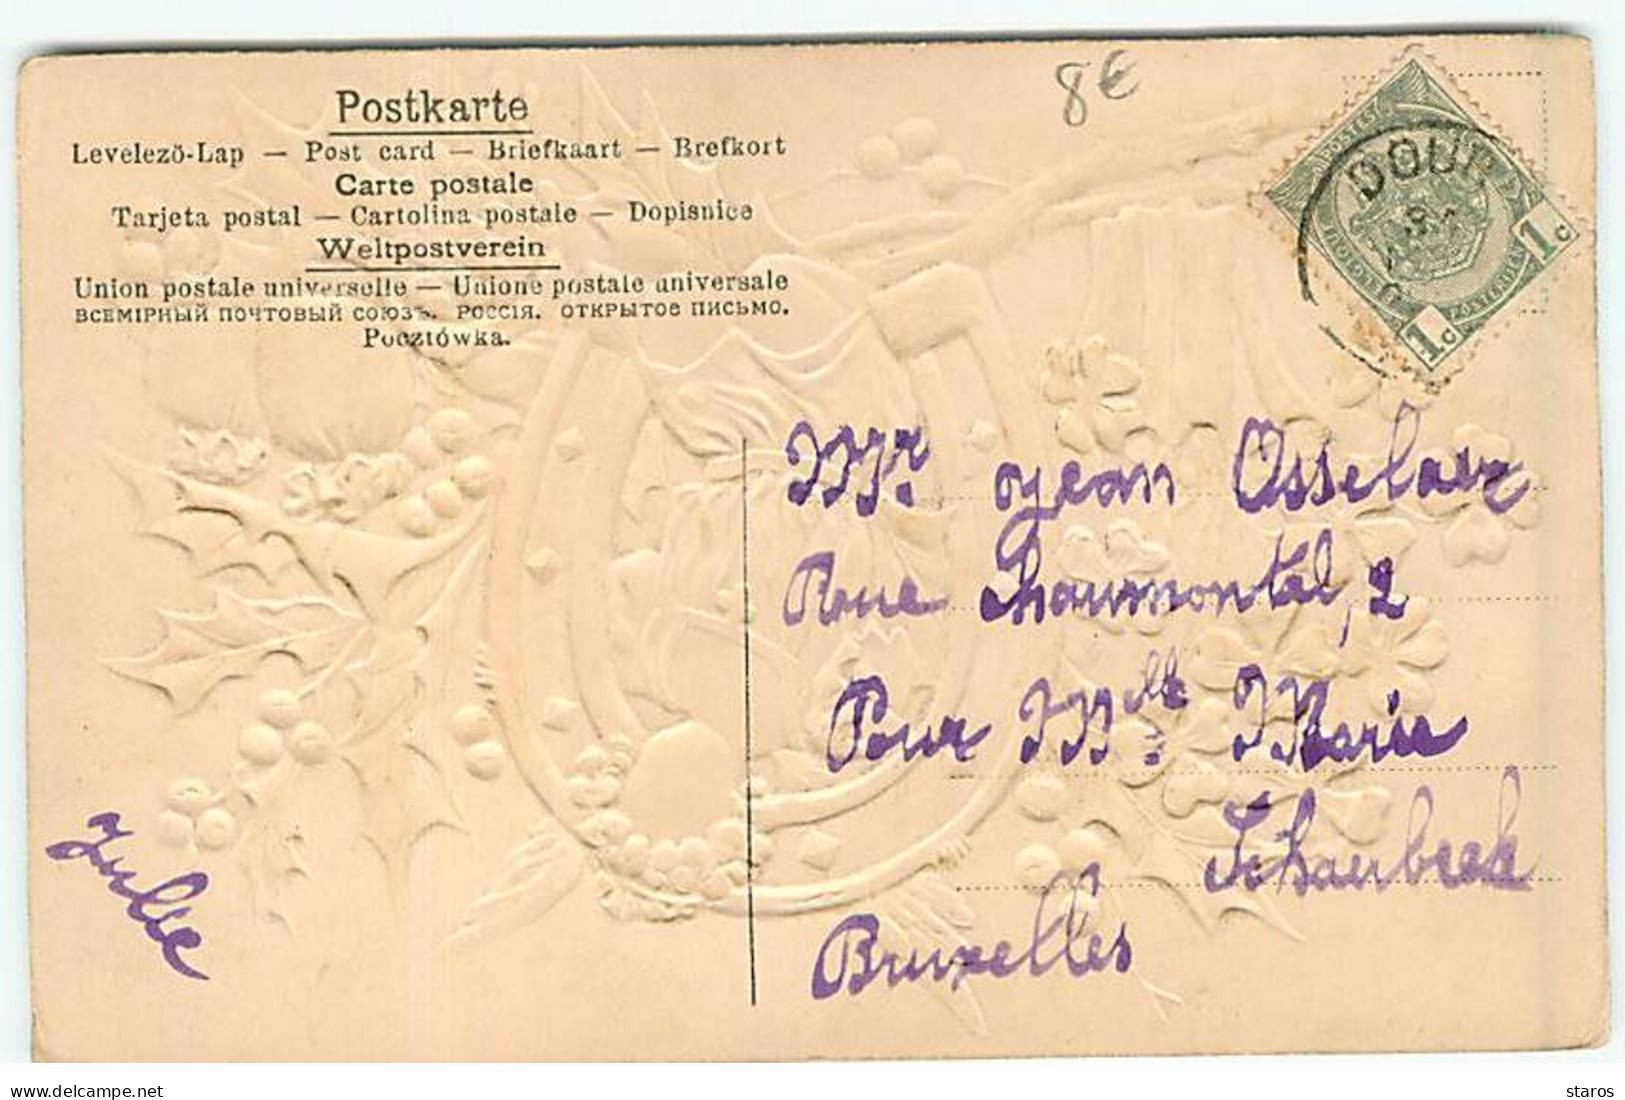 8€
Postkarte
Levelezö-Lap — Post card — Briefkaart — Brefkort
Carte postale
Tarjeta postal — Cartolina postale — Dopisnice
Weltpostverein
Union postale universelle — Unione postale universale
ВСЕМІРНЫЙ ПОЧТОВЫЙ СОЮЗЪ. РОССІЯ. ОТКРЫТОЕ ПИСЬМО.
Pocztówka.
DOUR
1c
1c
Mr. Jean Osselaer
Rue Chaumontel, 2
Pour Mlle Maria
Schaerbeek
Bruxelles
delcampe.net
staros